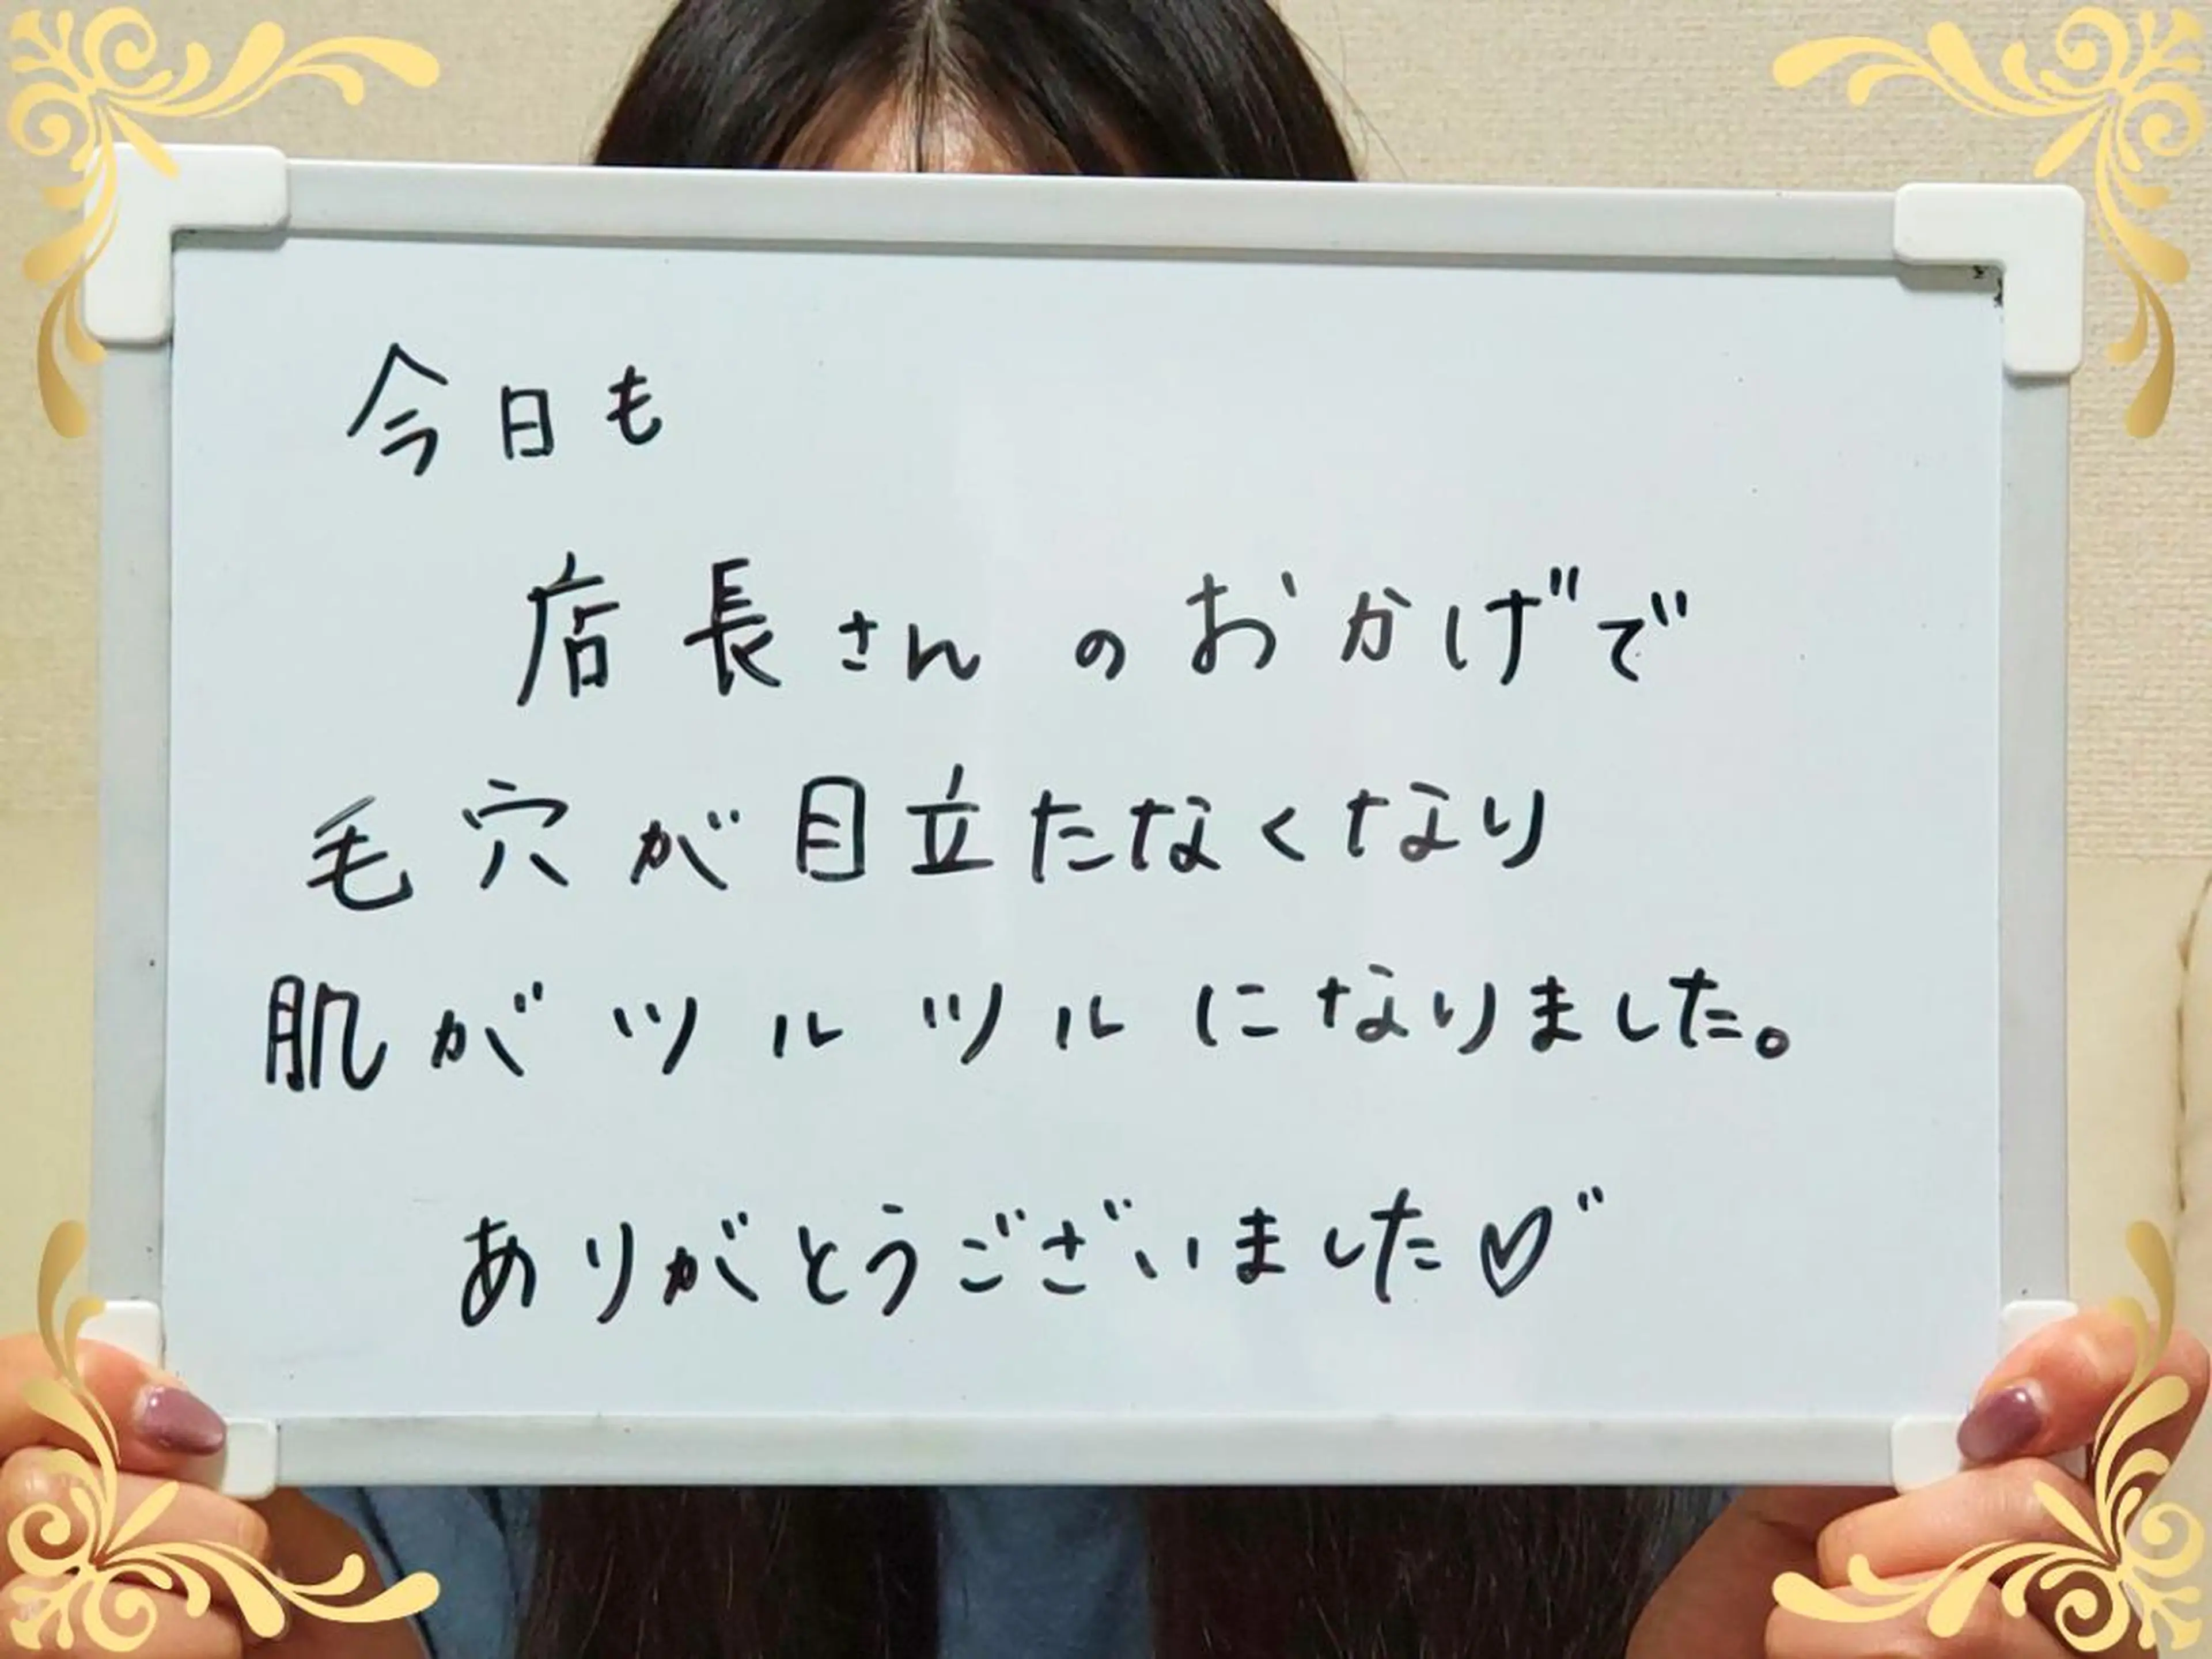 今日も
店長さんのおかげで
毛穴が目立たなくなり
肌がツルツルになりました。
ありがとうございました♡"